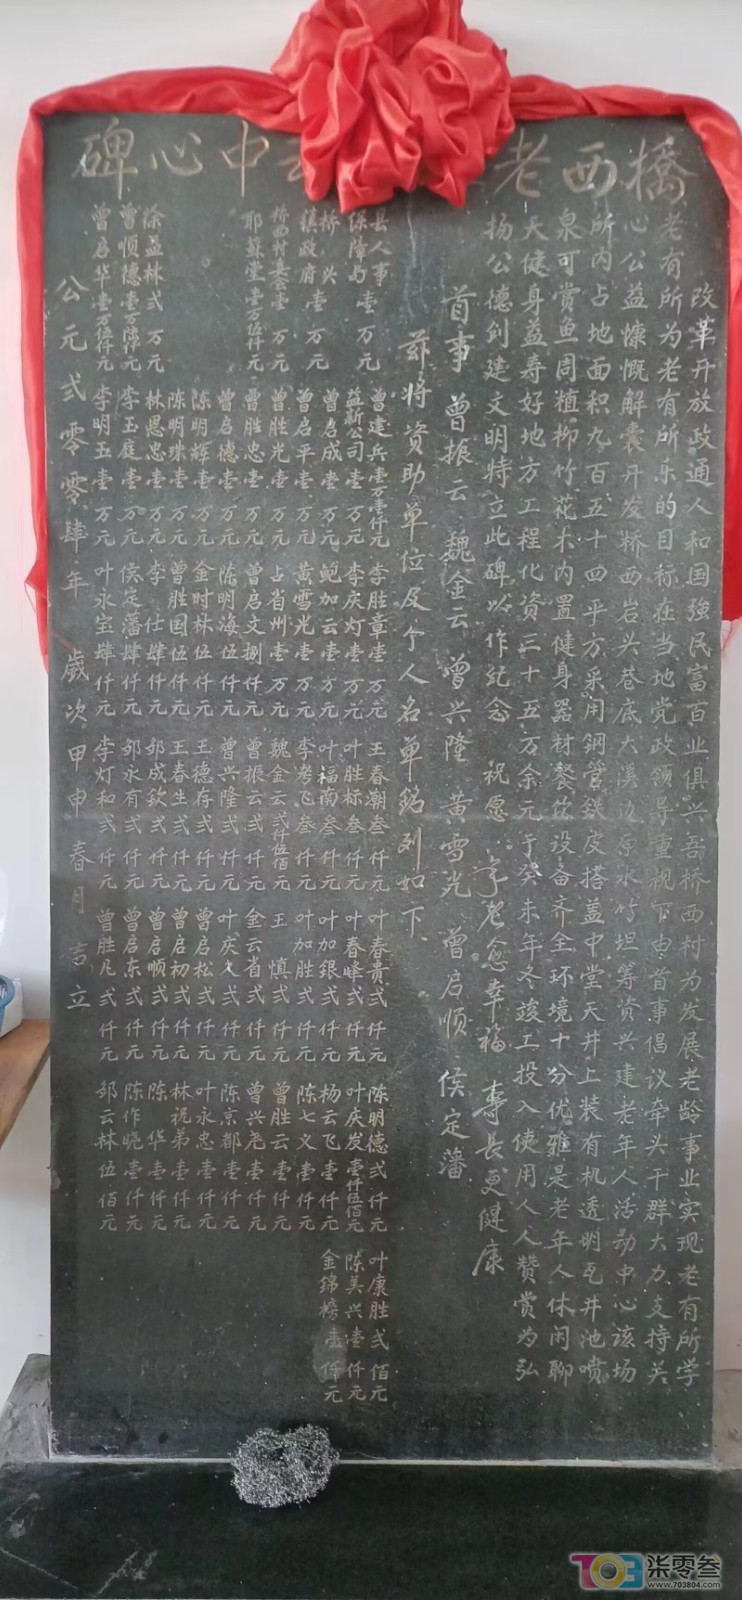 橋西老
中心碑
改革开放政通人和国強民富百业俱兴吾桥西村为发展老龄事业实现老有所学
老有所为老有所乐的目标在当地党政领导重视下由首事倡议牵头干群大力支持关
心公益慷慨解囊开发桥西岩头巷底大溪边原水竹坦筹资兴建老年人活动中心该场
所内占地面积九百五十四平方采用鋼管铁皮搭盖中堂天井上装有机透明瓦井池喷
泉可赏鱼周植柳竹花木内置健身器材餐饮设备齐全环境十分优雅是老年人休闲聊
天健身益寿好地方工程化资三十五万余元于癸未年冬竣工投入使用人人赞赏为弘
扬公德创建文明特立此碑以作纪念 祝愿:老愈幸福 寿长更健康
首事 曾振云 魏金云 曾兴隆 黄雪光 曾启顺 侯定藩
兹将资助单位及个人名单銘列如下
县人事
保障局壹万元
桥兴
镇政府壹万元
桥西村委会壹万元
耶蘇堂壹万伍仟元
徐益林弍万元
曾顺德壹万陆仟元
曾启华壹万伍仟元
曾建兵壹万壹仟元
益新公司壹万元
曾启成壹万元
曾启平壹万元
曾胜光壹万元
曾胜忠壹万元
曾启德壹万元
陈明辉壹万元
陈明珠壹万元
林恩忠壹万元
李玉庭壹万元
李明玉壹万元
李胜章壹万元
李庆灯壹万元
鲍加云壹万元
黄雪光壹万元
占省州壹万元
曾启文捌仟元
陈明海伍仟元
金时林伍仟元
曾胜国伍仟元
李仕肆仟元
侯定藩肆仟元
叶永宝肆仟元
王春潮叁仟元
叶胜标叁仟元
叶福南叁仟元
李考飞叁仟元
魏金云弍仟伍佰元
曾振云弍仟元
曾兴隆弍仟元
王德存弍仟元
王春生弍仟元
邹成钦弍仟元
邹永有弍仟元
李灯和弍仟元
叶春贵弍仟元
叶春峰弍仟元
叶加銀弍仟元
叶加胜弍仟元
王慎弍仟元
金云省弍仟元
叶庆久弍仟元
曾启松弍仟元
曾启初弍仟元
曾启顺弍仟元
曾启东弍仟元
曾胜凡弍仟元
陈明德弍仟元
叶庆发壹仟伍佰元
杨云飞壹仟元
陈七义壹仟元
曾胜云壹仟元
曾兴尧壹仟元
陈京都壹仟元
叶永忠壹仟元
林祝弟壹仟元
陈华壹仟元
陈作晓壹仟元
邹云林伍佰元
叶康胜弍佰元
陈美兴壹仟元
金錦榜壹仟元
公元弍零零肆年 歲次甲申春月吉立
703 柒零叁
www.703804.com